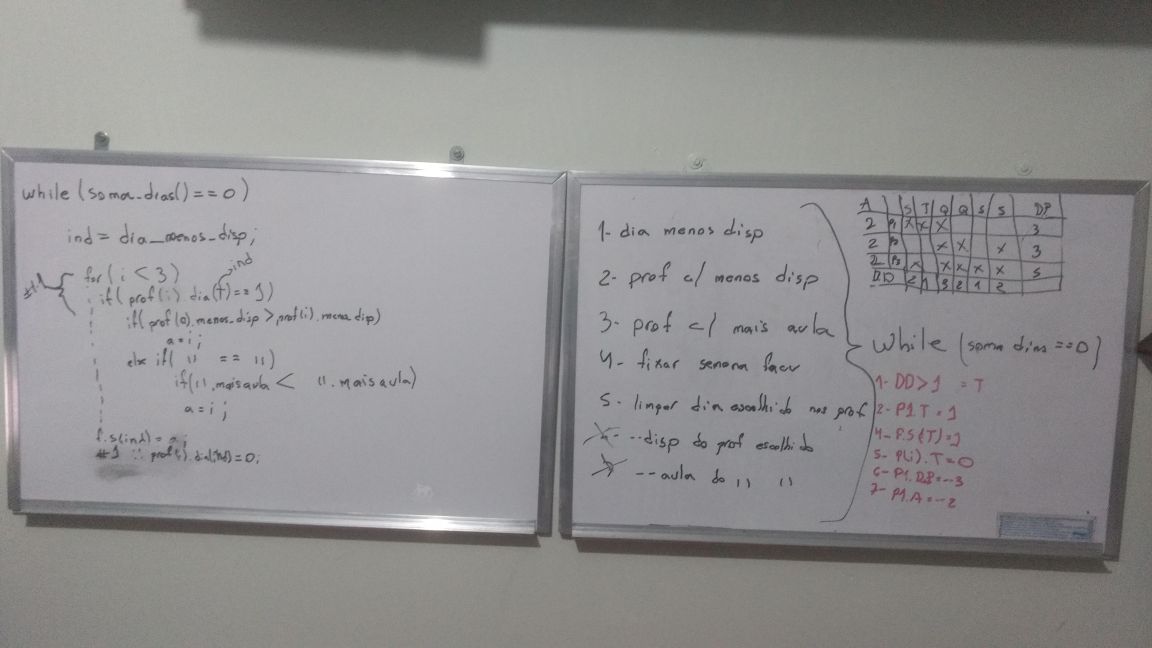 while (soma_dias() == 0)
ind = dia_menos_disp;
ind
for (i < 3)
#1
if (prof(i).dia(T) == 1)
if (prof(a).menos_disp > prof(i).menos disp)
a = i;
else if ( " == " )
if (".maisaula < ".maisaula)
a = i;
f.s(ind) = a;
#1 prof(i).dia(ind) = 0;
1- dia menos disp
2- prof c/ menos disp
3- prof c/ mais aula
4- fixar semana
5- limpar dia escolhido nos prof
--disp do prof escolhido
--aula do " "
A S T Q Q S S DP
2 P1 X X X 3
2 P2 X X X 3
2 P3 X X X X X 5
DD 2 1 3 2 1 2
while (soma dias == 0)
1- DD>1 = T
2- P1.T = 1
4- F.S(T)=1
5- P(i).T=0
6- P1.DP=--3
7- P1.A=--2